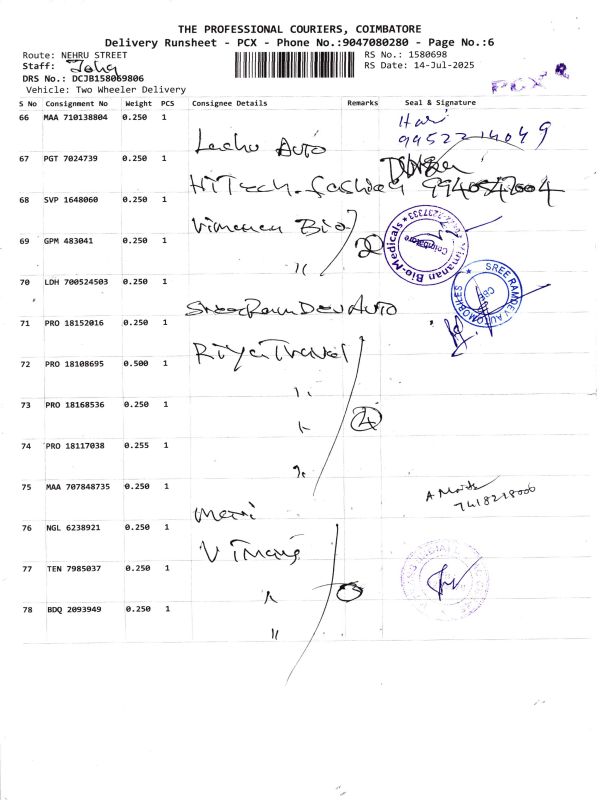 THE PROFESSIONAL COURIERS, COIMBATORE
Delivery Runsheet - PCX - Phone No.:9047080280 - Page No.:6
Route: NEHRU STREET
RS No.: 1580698
Staff:
RS Date: 14-Jul-2025
DRS No.: DCJB158069806
PCX
Vehicle: Two Wheeler Delivery
S No Consignment No Weight PCS Consignee Details Remarks Seal & Signature
66 MAA 710138804 0.250 1 Auto Hari
67 PGT 7024739 0.250 1 HiTech. fashion
68 SVP 1648060 0.250 1 Bio
Vimanan Bio-Medicals Coimbatore
69 GPM 483041 0.250 1 "
70 LDH 700524503 0.250 1 Sree Ram Dev Auto
SREE RAMDEV AUTOMOBILES CBE
71 PRO 18152016 0.250 1 Riya Travel
72 PRO 18108695 0.500 1 "
73 PRO 18168536 0.250 1 " 4
74 PRO 18117038 0.255 1 "
75 MAA 707848735 0.250 1
76 NGL 6238921 0.250 1
77 TEN 7985037 0.250 1 "
78 BDQ 2093949 0.250 1 "